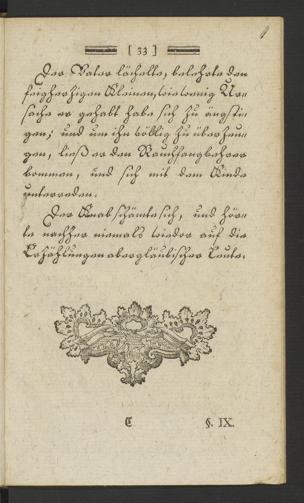 [ 33 ]
Der Vater lächelte, belehrte den
feigherzigen Kleinen, wie wenig Ur-
sache er gehabt habe sich zu ängsti-
gen; und um ihn völlig zu überzeu-
gen, ließ er den Rauchfangkehrer
kommen, und sich mit dem Kinde
unterreden.
Der Knab schämte sich, und hör-
te nachher niemals wieder auf die
Erzählungen abergläubischer Leute.
C §. IX.